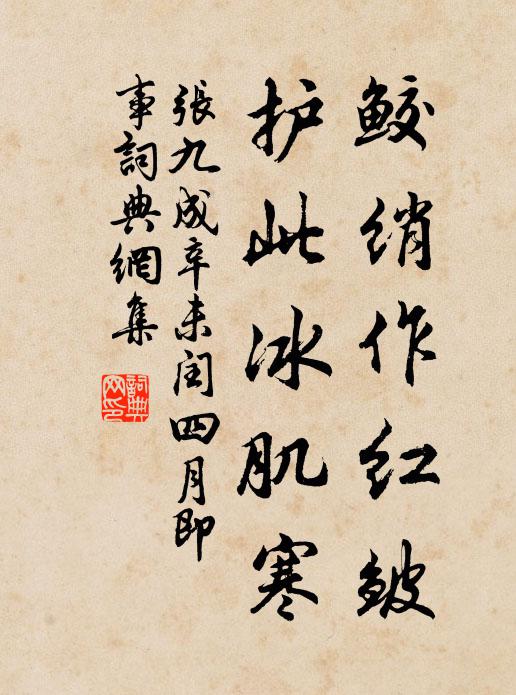 鲛绡作红皱
护此冰肌寒
張九成辛未闰四月即
事詞典網集
詞典网印